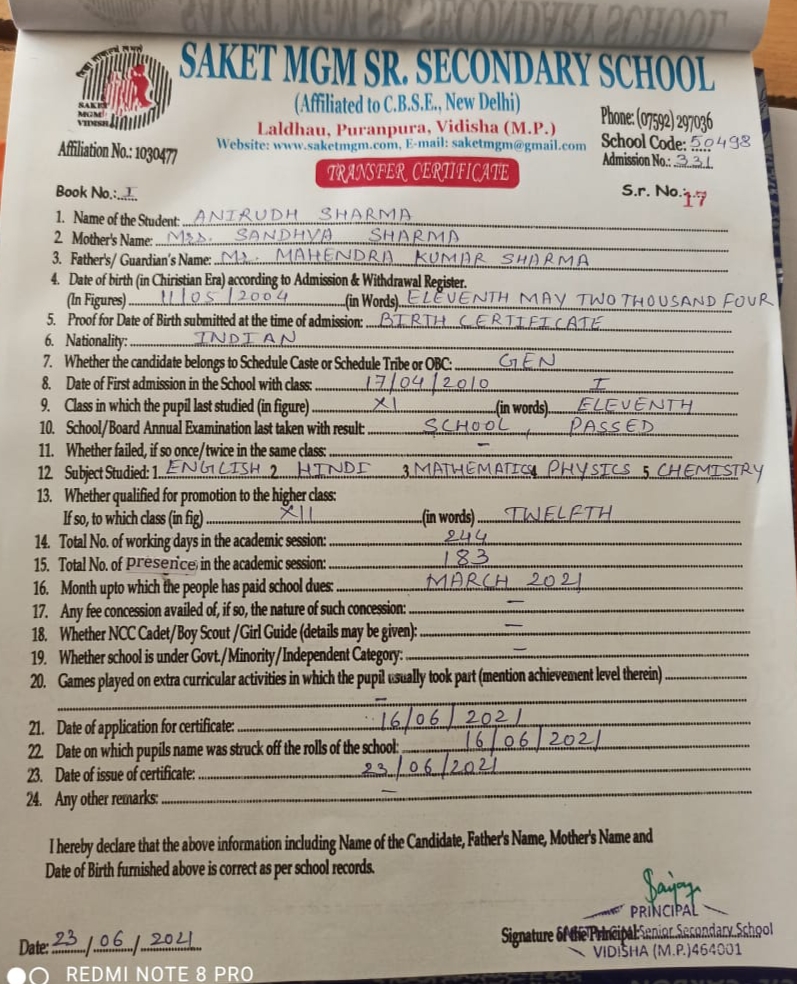 SAKET MGM SR. SECONDARY SCHOOL
(Affiliated to C.B.S.E., New Delhi)
SAKET
MGM
VIDISHA
Laldhau, Puranpura, Vidisha (M.P.)
Phone: (07592) 297036
Website: www.saketmgm.com, E-mail: saketmgm@gmail.com
School Code: 50498
Affiliation No.: 1030477
Admission No.: 331
TRANSFER CERTIFICATE
Book No.: I
S.r. No.: 17
1. Name of the Student: ANIRUDH SHARMA
2. Mother's Name: Mrs. SANDHYA SHARMA
3. Father's/ Guardian's Name: Mr. MAHENDRA KUMAR SHARMA
4. Date of birth (in Chiristian Era) according to Admission & Withdrawal Register.
(In Figures) 11/05/2004 (in Words) ELEVENTH MAY TWO THOUSAND FOUR
5. Proof for Date of Birth submitted at the time of admission: BIRTH CERTIFICATE
6. Nationality: INDIAN
7. Whether the candidate belongs to Schedule Caste or Schedule Tribe or OBC: GEN
8. Date of First admission in the School with class: 17/04/2010 I
9. Class in which the pupil last studied (in figure) XI (in words) ELEVENTH
10. School/Board Annual Examination last taken with result: SCHOOL, PASSED
11. Whether failed, if so once/twice in the same class: –
12. Subject Studied: 1. ENGLISH 2 HINDI 3 MATHEMATICS 4 PHYSICS 5 CHEMISTRY
13. Whether qualified for promotion to the higher class:
If so, to which class (in fig) XII (in words) TWELFTH
14. Total No. of working days in the academic session: 244
15. Total No. of presence in the academic session: 183
16. Month upto which the people has paid school dues: MARCH 2021
17. Any fee concession availed of, if so, the nature of such concession: –
18. Whether NCC Cadet/Boy Scout /Girl Guide (details may be given): –
19. Whether school is under Govt./Minority/Independent Category: –
20. Games played on extra curricular activities in which the pupil usually took part (mention achievement level therein)
–
21. Date of application for certificate: 16/06/2021
22. Date on which pupils name was struck off the rolls of the school: 16/06/2021
23. Date of issue of certificate: 23/06/2021
24. Any other remarks: –
I hereby declare that the above information including Name of the Candidate, Father's Name, Mother's Name and
Date of Birth furnished above is correct as per school records.
PRINCIPAL
Signature of the Principal Senior Secondary School
VIDISHA (M.P.)464001
Date: 23/06/2021
REDMI NOTE 8 PRO